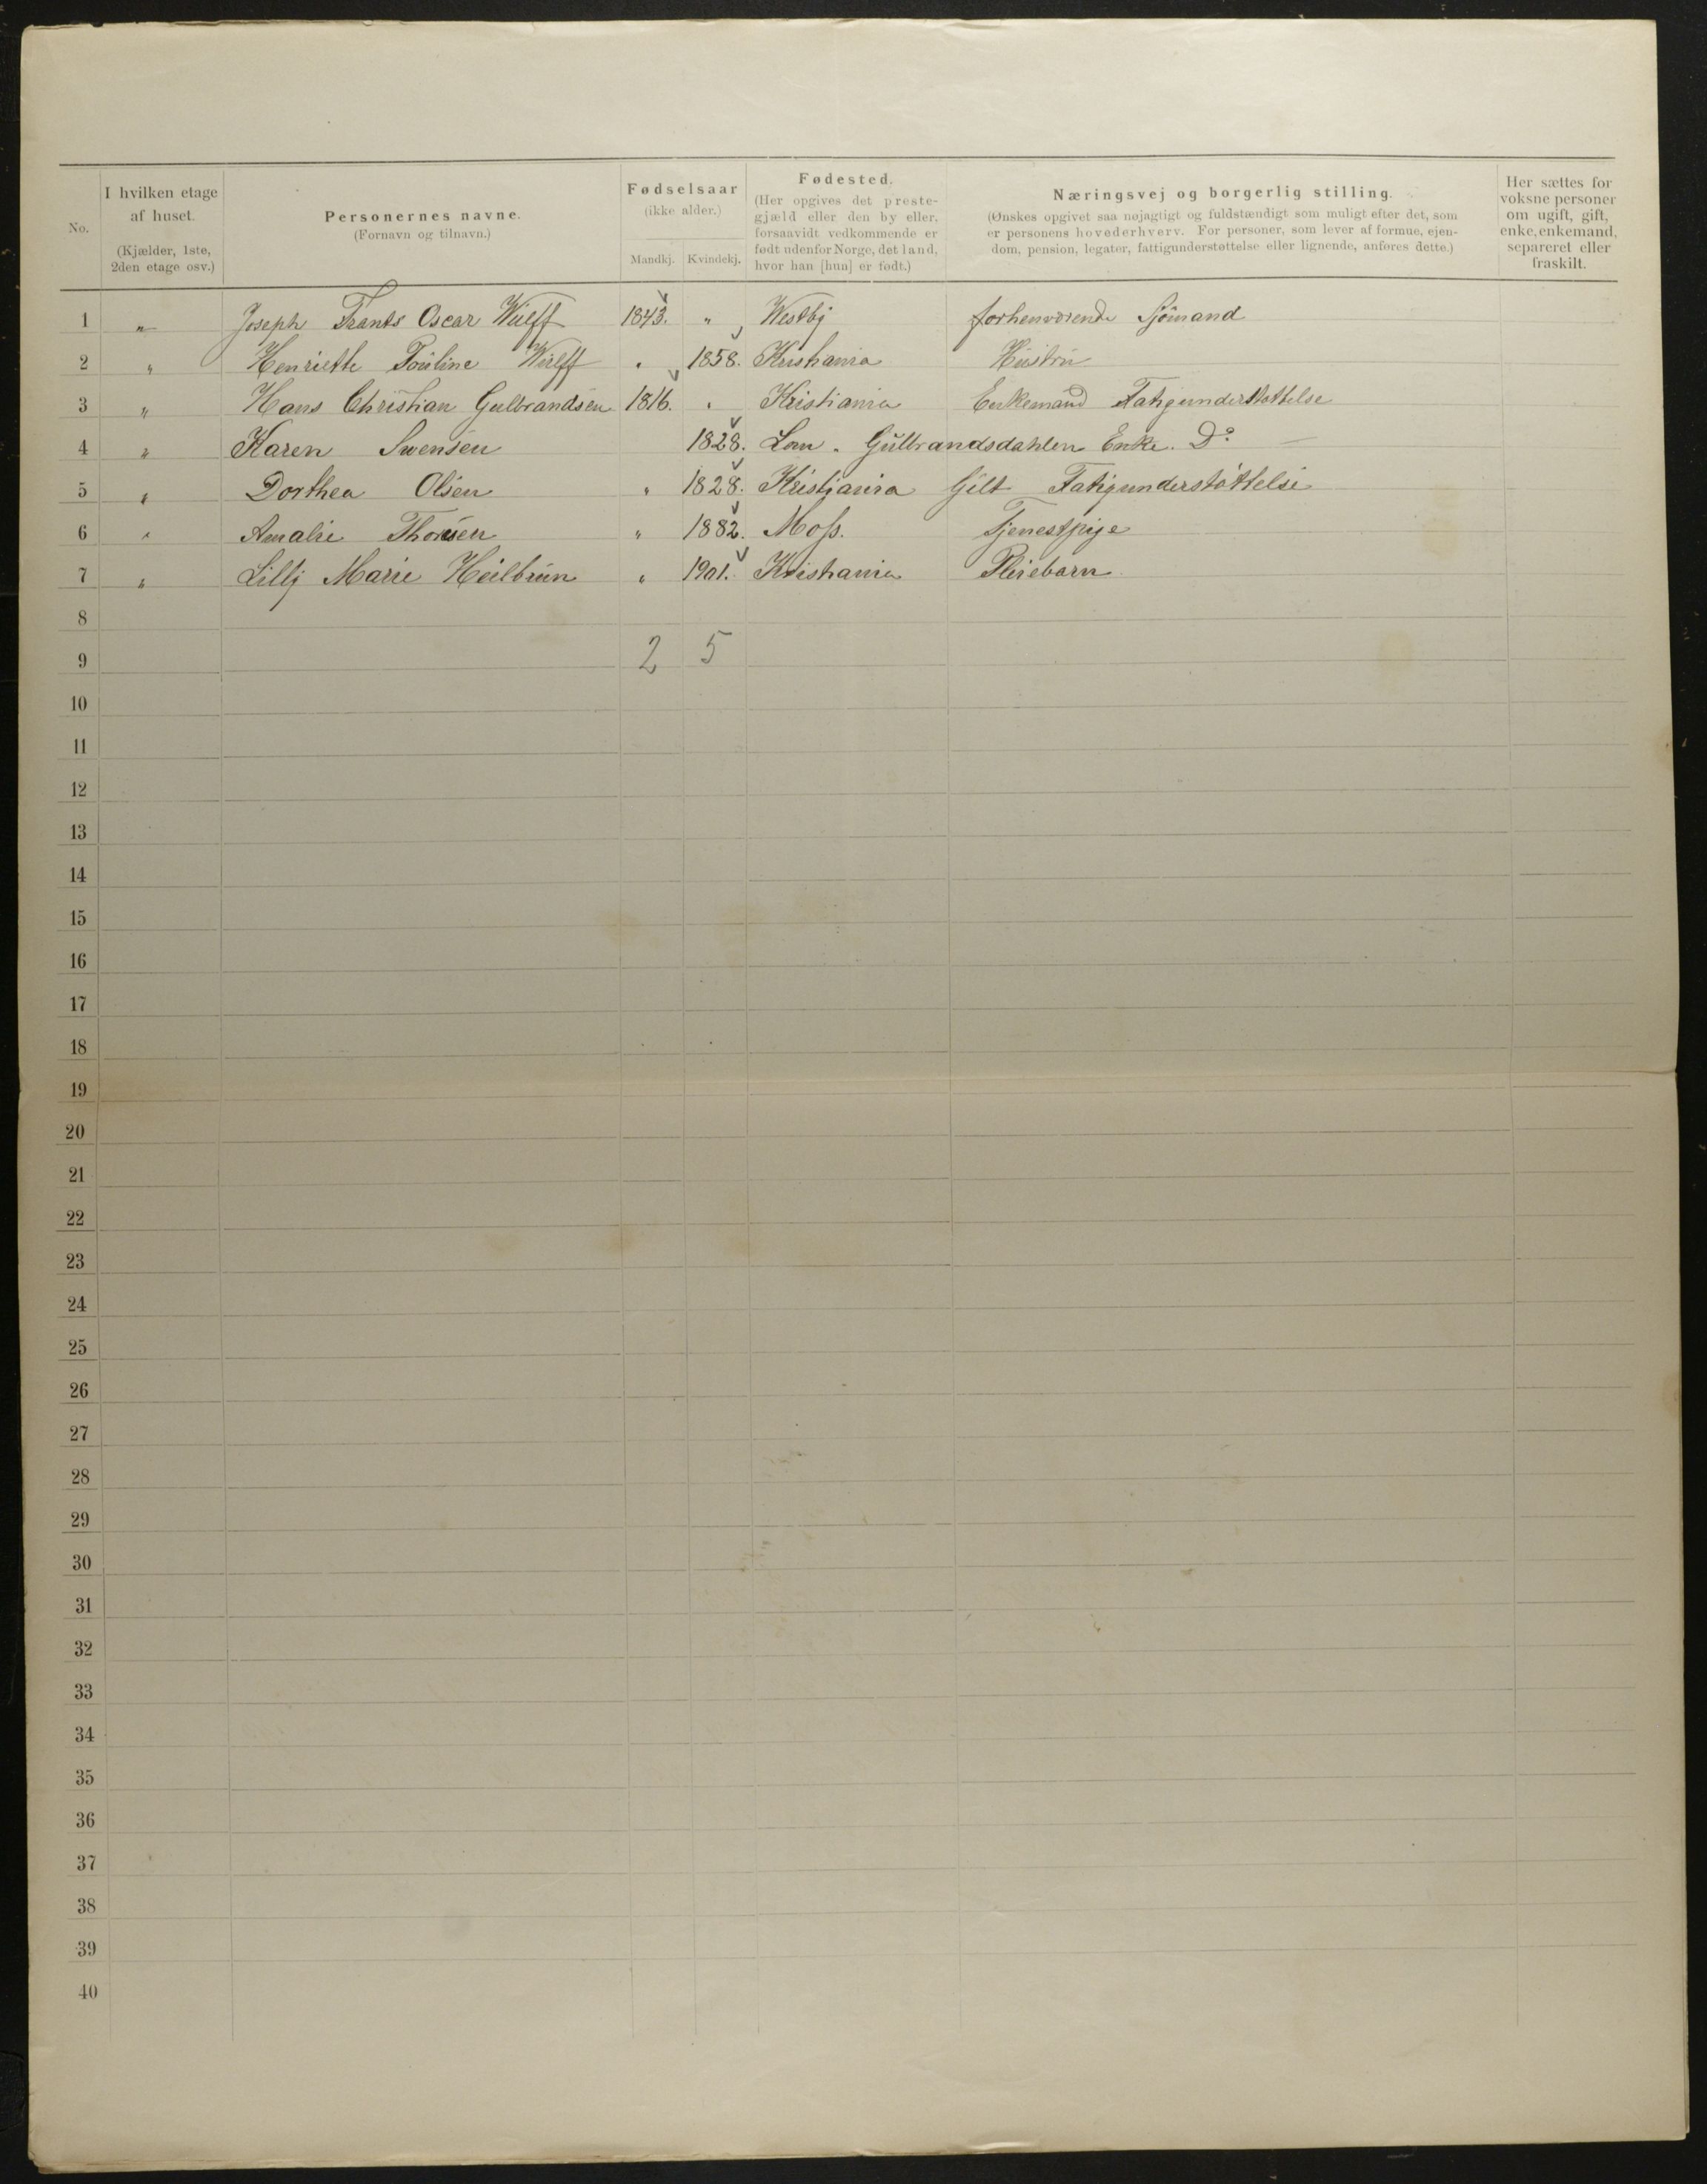 No.
I hvilken etage af huset. (Kjælder, 1ste, 2den etage osv.)
Personernes navne. (Fornavn og tilnavn.)
Fødselsaar (ikke alder.) Mandkj. Kvindekj.
Fødested. (Her opgives det prestegjæld eller den by eller, forsaavidt vedkommende er født udenfor Norge, det land, hvor han [hun] er født.)
Næringsvej og borgerlig stilling. (Ønskes opgivet saa nøjagtigt og fuldstændigt som muligt efter det, som er personens hovederhverv. For personer, som lever af formue, ejendom, pension, legater, fattigunderstøttelse eller lignende, anføres dette.)
Her sættes for voksne personer om ugift, gift, enke, enkemand, separeret eller fraskilt.
1 " Joseph Frants Oscar Wulff 1843. " Westbj forhenværende Sjömand
2 " Henriette Pouline Wulff " 1858. Kristiania Hustru
3 " Hans Christian Gulbrandsen 1816. " Kristiania Enkemand Fatigunderstøttelse
4 " Karen Swensen 1828. Lom. Gulbrandsdahlen Enke. Do
5 " Dorthea Olsen " 1828. Kristiania Gilt Fatigunderstøttelse
6 " Amalie Thorsen " 1882. Moss. Tjenestpige
7 " Lillj Marie Heilbrun " 1901. Kristiania Pleiebarn
8
9 2 5
10
11
12
13
14
15
16
17
18
19
20
21
22
23
24
25
26
27
28
29
30
31
32
33
34
35
36
37
38
39
40